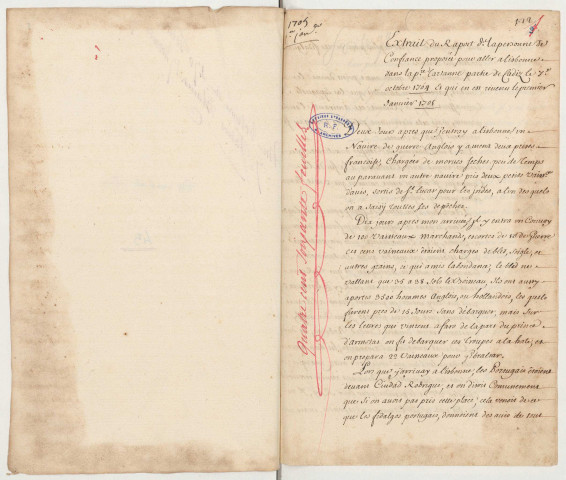 1705
1er janer
112
Extrait du Raport de la personne de
Confiance proposé pour aller a lisbonne
dans la pte tartanne partie de Cadiz le 7e
octobre 1704 et que en est revenu le premier
Janvier 1705
Deux Jours apres que J'entray a lisbonne un
Navire de guerre Anglois y amena deux prises
francoises, Chargées de morues seches peu de temps
auparavant un autre navire pris deux petits vaiss.
danois, sortis de St. lucar pour les indes, a l'un des quels
on a saisy touttes les depesches.
Dix jours apres mon arrivée, Il y entra un Convoy
de 100 Vaisseaux Marchands, escortez de 18 de Guerre
ces cent vaisseaux etoient chargés de bled, seigle, et
autres grains, ce qui amis l'abondance; le bled ne
vallant que 35 a 38 sols le Boisseau, Ils ont aussy
aporté 3500 hommes Anglois, ou hollandois, les quels
furent pres de 15 Jours sans debarquer, mais sur
les lettres que vinrent a faro de la part du prince
d'armstat on fit debarquer ces Troupes a la hate, et
on prepara 22 Vaisseaux pour gibraltar.
Lors que J'arrivay a lisbonne, les Portugais étoient
devant Ciudad Rodrigue, et on disoit Communement
que si on avoit pas pris cette place; cela venoit de ce
que les fidalgos portugais, donnoient des avis de tout
quatre cent soixante feuillets
AFFAIRES ETRANGERES
ARCHIVES